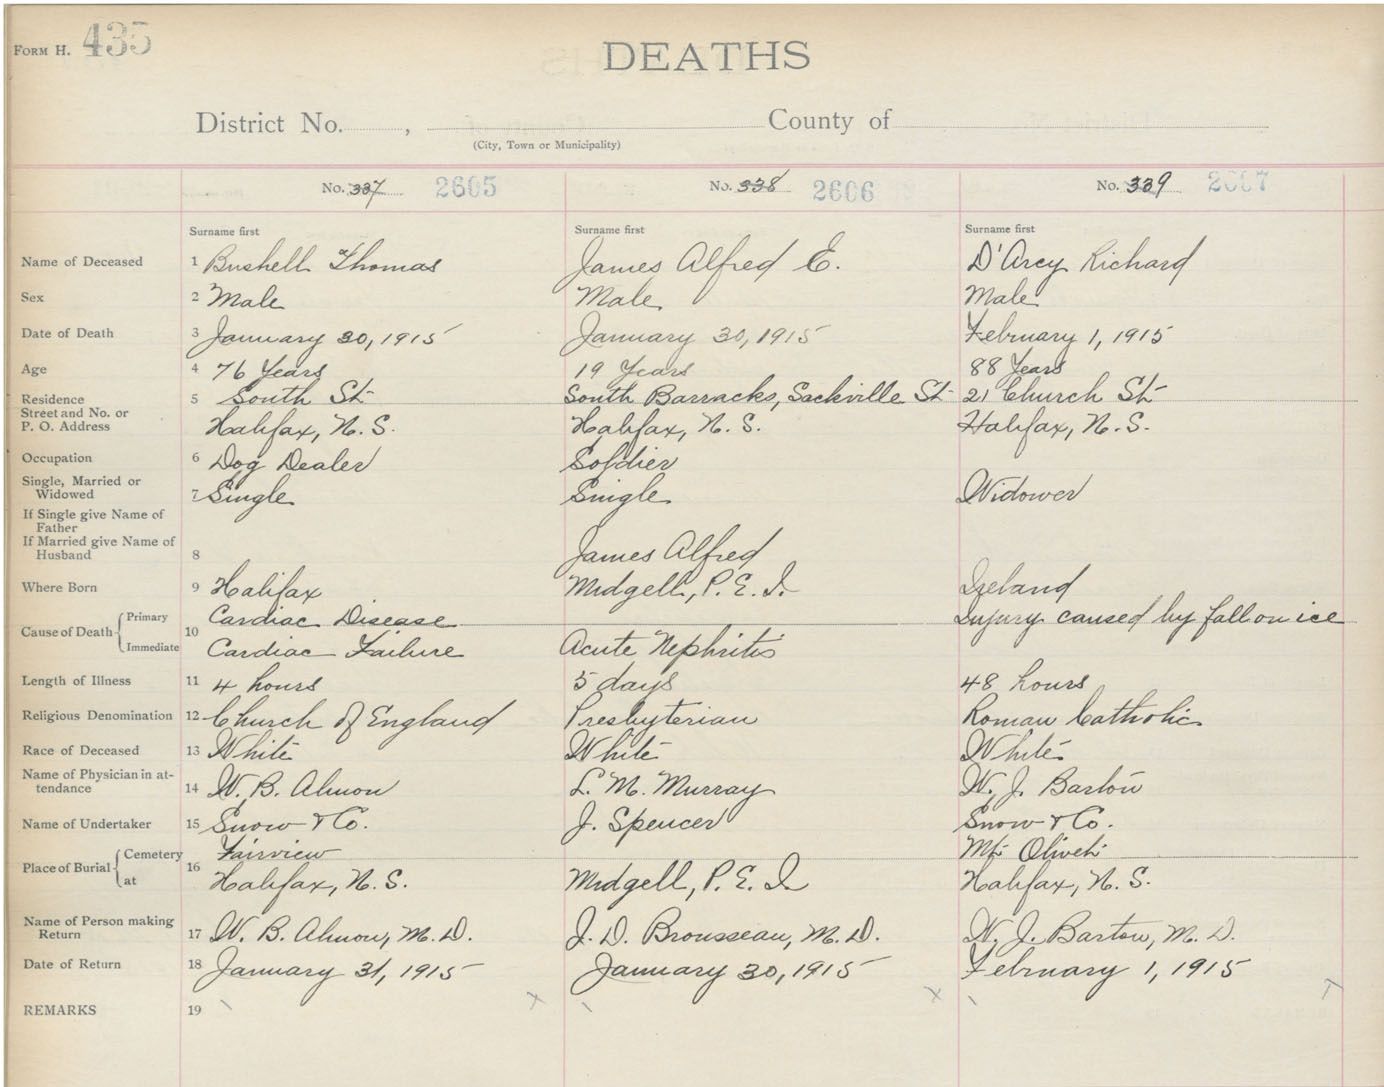 FORM H. 435
DEATHS
District No. , County of
(City, Town or Municipality)
No. 337 2605 No. 338 2606 No. 339 2607
Surname first Surname first Surname first
Name of Deceased 1 Bushell Thomas James Alfred E. D'Arcy Richard
Sex 2 Male Male Male
Date of Death 3 January 30, 1915 January 30, 1915 February 1, 1915
Age 4 76 Years 19 Years 88 Years
Residence 5 South St South Barracks, Sackville St 21 Church St
Street and No. or
P. O. Address Halifax, N. S. Halifax, N. S. Halifax, N. S.
Occupation 6 Dog Dealer Soldier
Single, Married or
Widowed 7 Single Single Widower
If Single give Name of
Father
If Married give Name of
Husband 8 James Alfred
Where Born 9 Halifax Midgell, P. E. I. Ireland
Cause of Death Primary 10 Cardiac Disease Injury caused by fall on ice
Immediate Cardiac Failure Acute Nephritis
Length of Illness 11 4 hours 5 days 48 hours
Religious Denomination 12 Church of England Presbyterian Roman Catholic
Race of Deceased 13 White White White
Name of Physician in at-
tendance 14 W. B. Almon L. M. Murray W. J. Barton
Name of Undertaker 15 Snow & Co. J. Spencer Snow & Co.
Place of Burial Cemetery 16 Fairview Mt Olivet
at Halifax, N. S. Midgell, P. E. I Halifax, N. S.
Name of Person making
Return 17 W. B. Almon, M. D. J. D. Brousseau, M. D. W. J. Barton, M. D.
Date of Return 18 January 31, 1915 January 30, 1915 February 1, 1915
REMARKS 19